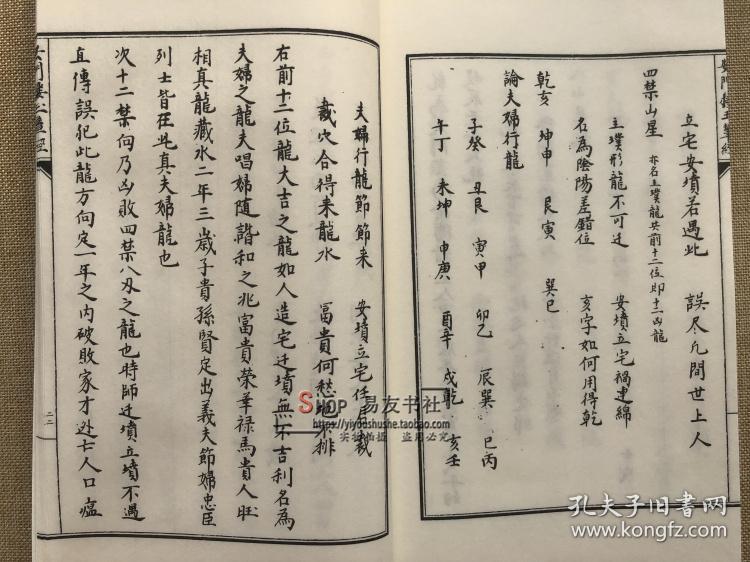 立宅安墳若遇此　誤尽凡間世上人
四禁山星　亦名土墣龍共前十二位即十二凶龍
土墣形龍不可迁　安墳立宅禍連綿
名為陰陽差錯位　亥字如何用得乾
乾亥　坤申　艮寅　巽巳
論夫婦行龍
子癸　丑艮　寅甲　卯乙　辰巽　巳丙
午丁　未坤　申庚　酉辛　戌乾　亥壬
二二
夫婦行龍節節来　安墳立宅任君裁
裁穴合得来龍水　富貴何愁地排
右前十二位龍大吉之龍如人造宅迁墳無不吉利名為
夫婦之龍夫唱婦随諧和之兆富貴榮華禄馬貴人旺
相真龍藏水二年三歲子貴孫賢定出義夫節婦忠臣
列士皆在此真夫婦龍也
次十二禁向乃凶敗四禁八刃之龍也時師迁墳立墳不遇
直傳誤犯此龍方向定一年之内破敗家才迯亡人口瘟
SHOP 易友书社
https://yiyoushushe.kongfz.com
实物拍摄　盗用必究
孔夫子旧書网
www.kongfz.com